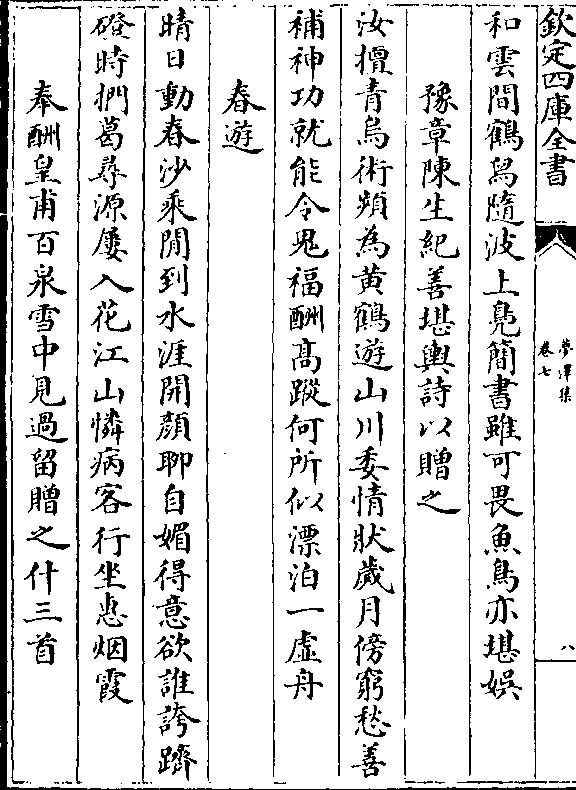 欽定四庫全書
夢澤集
卷七
八
和雲間鶴舄隨波上鳧簡書雖可畏魚鳥亦堪娛
豫章陳生紀善堪輿詩以贈之
汝擅青烏術頻為黄鶴遊山川委情狀歲月傍窮愁善
補神功就能令鬼福酬髙蹤何所似漂泊一虛舟
春遊
晴日動春沙乘閒到水涯開顔聊自媚得意欲誰誇躋
磴時捫葛尋源屢入花江山憐病客行坐恵烟霞
奉酬皇甫百泉雪中見過留贈之什三首